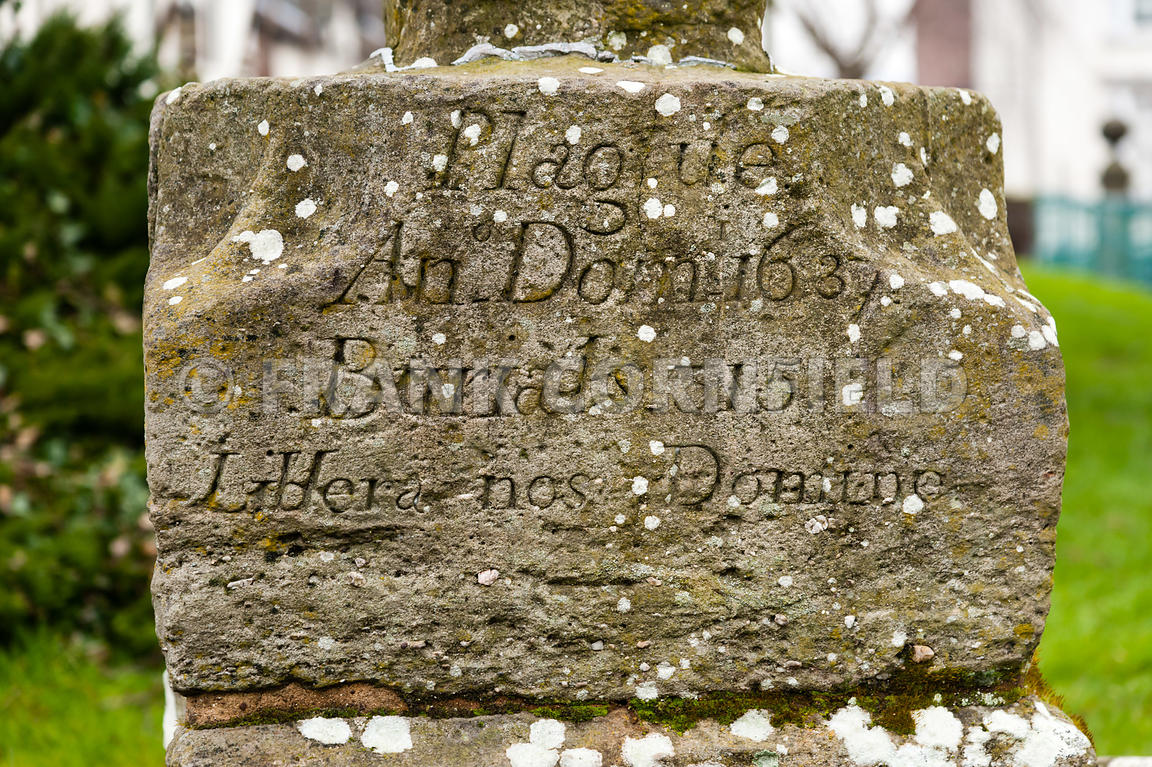 Plague
An.º Dom.ⁱ 1637
Burials 315
Libera nos Domine
© FRANK CORNFIELD